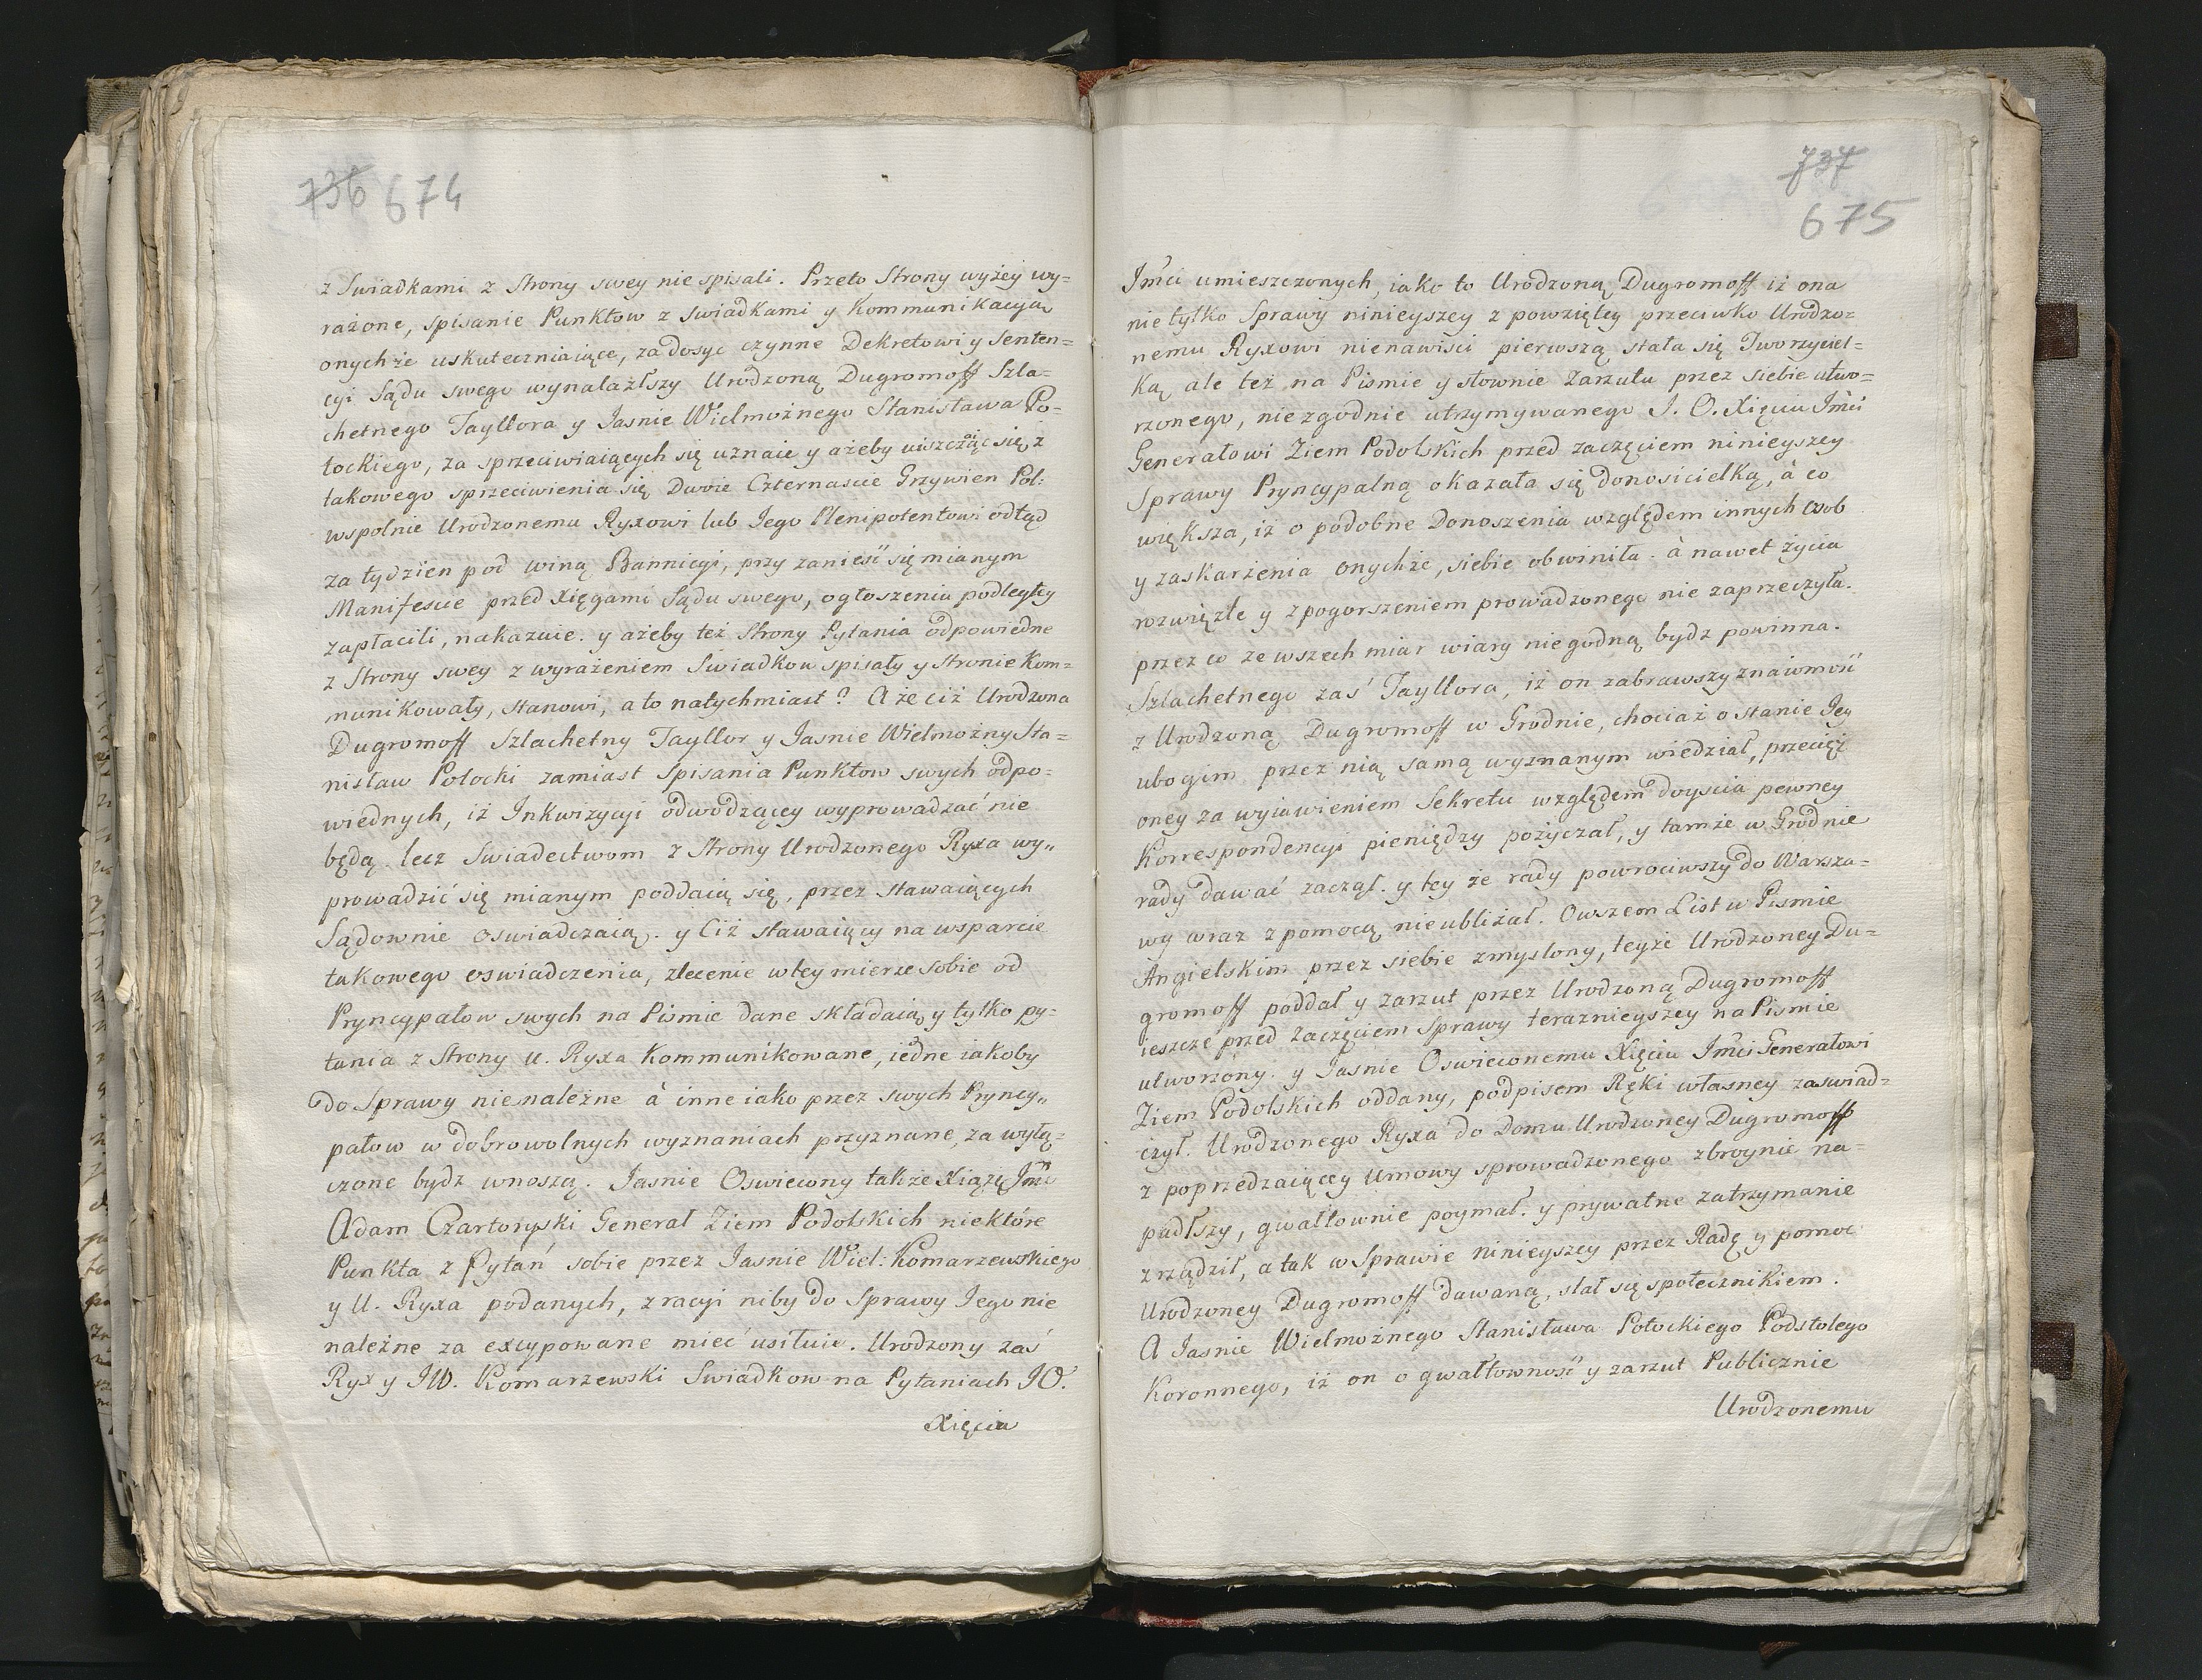 736 674
z Swiadkami z Strony swey nie spisali. Przeto Strony wyżey wy=
rażone, spisanie Punktow z swiadkami y Kommunikacyą
onychże uskuteczniaiące, zadosyc czynne Dekretowi y Senten=
cyi Sądu swego wynalazłszy Urodzoną Dugromoff Szla=
chetnego Tayllora y Jasnie Wielmożnego Stanisława Po=
tockiego, za sprzeciwiaiących się uznaie y ażeby uiszcząiąc się z
takowego sprzeciwienia się Dwoie Czternascie Grzywien Pol:
wspolnie Urodzonemu Ryxowi lub Jego Plenipotentowi odtąd
za tydzien pod winą Bannicyi, przy zanieść się mianym
Manifescie przed Xięgami Sądu swego, ogłoszeniu podległey
zapłacili, nakazuie. y ażeby też Strony Pytania odpowiedne
z Strony swey z wyrażeniem Swiadkow spisały y Stronie Kom=
munikowały, stanowi, a to natychmiast? A że ciż Urodzona
Dugromoff Szlachetny Tayllor y Jasnie Wielmożny Sta=
nisław Potocki zamiast Spisania Punktow swych odpo=
wiednych, iż Inkwizycyi odwodzącey wyprowadzać nie
będą. lecz Swiadectwom z Strony Urodzonego Ryxa wy„
prowadzić się mianym poddaią się, przez stawaiących
Sądownie oswiadczaią. y Ciż stawaiący na wsparcie
takowego oswiadczenia, zlecenie w tey mierze sobie od
Pryncypałow swych na Pismie dane składaią, y tylko py=
tania z Strony U. Ryxa Kommunikowane, iedne iakoby
do Sprawy nienależne à inne iako przez swych Pryncy„
pałow w dobrowolnych wyznaniach przyznane, za wyłą=
czone bydz wnoszą. Jasnie Oswiecony także Xiążę Jmć
Adam Czartoryski Generał Ziem Podolskich niektóre
Punkta z Pytań sobie przez Jasnie Wiel: Komarzewskiego
y U. Ryxa podanych, z racyi niby do Sprawy Jego nie
należne za excypowane mieć usiłuie. Urodzony zaś
Ryx y JW. Komarzewski Swiadkow na Pytaniach JO.
Xięcia
737
675
Jmci umieszczonych, iako to Urodzoną Dugromoff iż ona
nie tylko Sprawy ninieyszey z powziętey przeciwko Urodzo=
nemu Ryxowi nienawisci pierwszą stała się Tworzyciel=
ką, ale też na Pismie y słownie Zarzutu przez siebie utwo=
rzonego, niezgodnie utrzymywanego J. O. Xięciu Jmci
Generałowi Ziem Podolskich przed zaczęciem ninieyszey
Sprawy Pryncypalną okazała się Donosicielką, à co
większa, iż o podobne Donoszenia względem innych osob
y zaskarżenia onychże, siebie obwiniła. à nawet życia
rozwięzłe y z pogorszeniem prowadzonego nie zaprzeczyła.
przez co ze wszech miar wiary niegodną bydz powinna.
Szlachetnego zaś Tayllora, iż on zabrawszy znaiomość
z Urodzoną Dugromoff w Grodnie, chociaż o stanie Jey
ubogim przez nią samą wyznanym wiedział, przecięż
oney za wyiawieniem Sekretu względem doyscia pewney
Korrespondencyi pieniędzy pożyczał, y tamże w Grodnie
rady dawać zaczął. y tey że rady powrociwszy do Warsza=
wy wraz z pomocą nieubliżał. Owszem List w Pismie
Angielskim przez siebie zmyslony, teyże Urodzoney Du=
gromoff poddał y zarzut przez Urodzoną Dugromoff
ieszcze przed zaczęciem Sprawy teraznieyszey na Pismie
utworzony. y Jasnie Oswieconemu Xięciu Jmci Generałowi
Ziem Podolskich oddany, podpisem Ręki własney zaswiad=
czył. Urodzonego Ryxa do Domu Urodzoney Dugromoff
z poprzedzaiącey Umowy sprowadzonego zbroynie na=
padłszy, gwałtownie poymał. y prywatne zatrzymanie
zrządził, a tak w Sprawie ninieyszey przez Radę y pomoc
Urodzoney Dugromoff dawaną, stał się społecznikiem.
A Jasnie Wielmożnego Stanisława Potockiego Podstolego
Koronnego, iż on o gwałtowność y zarzut Publicznie
Urodzonemu